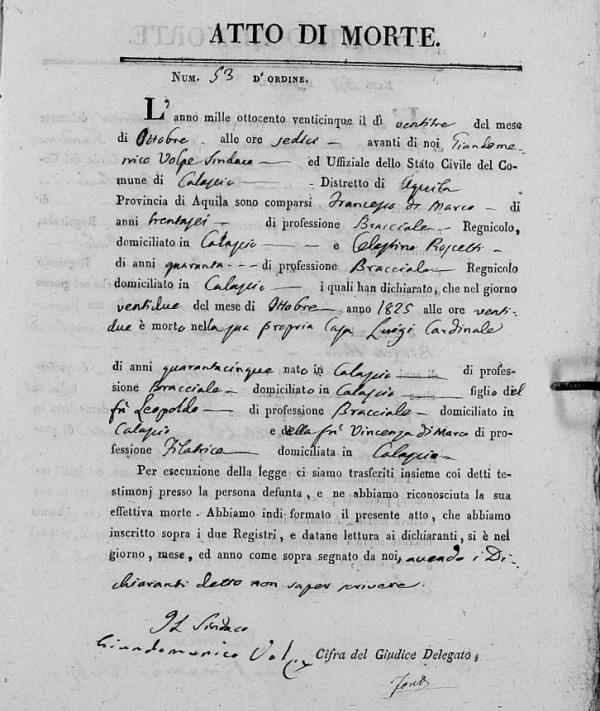 ATTO DI MORTE.
NUM. 53 D'ORDINE.
L'anno mille ottocento venticinque il dì ventitre del mese
di Ottobre alle ore sedici avanti di noi Giandome-
nico Volpe Sindaco ed Uffiziale dello Stato Civile del Co-
mune di Calascio Distretto di Aquila
Provincia di Aquila sono comparsi Francesco di Marco di
anni trentasei di professione Bracciale Regnicolo,
domiciliato in Calascio e Celestino
di anni quaranta di professione Bracciale Regnicolo
domiciliato in Calascio i quali han dichiarato, che nel giorno
ventidue del mese di Ottobre anno 1825 alle ore venti-
due è morto nella sua propria Casa Luigi Cardinale
di anni quarantacinque nato in Calascio di profes-
sione Bracciale domiciliato in Calascio figlio del
fù Leopoldo di professione Bracciale domiciliato in
Calascio e della fù Vincenza di Marco di pro-
fessione Filatrice domiciliata in Calascio
Per esecuzione della legge ci siamo trasferiti insieme coi detti te-
stimonj presso la persona defunta, e ne abbiamo riconosciuta la sua
effettiva morte. Abbiamo indi formato il presente atto, che abbiamo
inscritto sopra i due Registri, e datane lettura ai dichiaranti, si è nel
giorno, mese, ed anno come sopra segnato da noi, avendo i Di-
chiaranti detto non saper scrivere.
Il Sindaco
Giandomenico Volpe
Cifra del Giudice Delegato